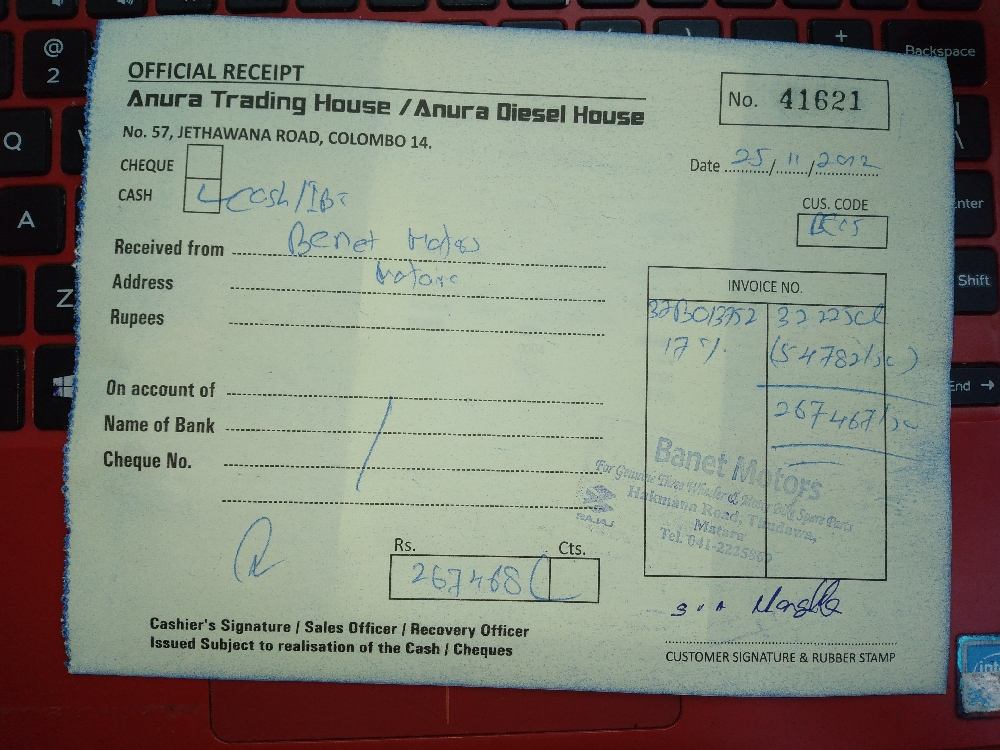 OFFICIAL RECEIPT
Anura Trading House / Anura Diesel House
No. 57, JETHAWANA ROAD, COLOMBO 14.
No. 41621
Date 25/11/2012
CHEQUE
CASH Cash/
CUS. CODE
Received from Benet Motors
Address
Rupees
INVOICE NO.
17 %
(54782/50)
267467/50
On account of
Name of Bank
Cheque No.
Banet Motors
For Genuine Three Wheeler & Motor Bike Spare Parts
Hakmana Road, Thudawa,
Matara
Tel. 041-2225860
BAJAJ
Rs. Cts.
267468
Cashier's Signature / Sales Officer / Recovery Officer
Issued Subject to realisation of the Cash / Cheques
CUSTOMER SIGNATURE & RUBBER STAMP
@
2
Q
A
Z
+
Backspace
Enter
Shift
End →